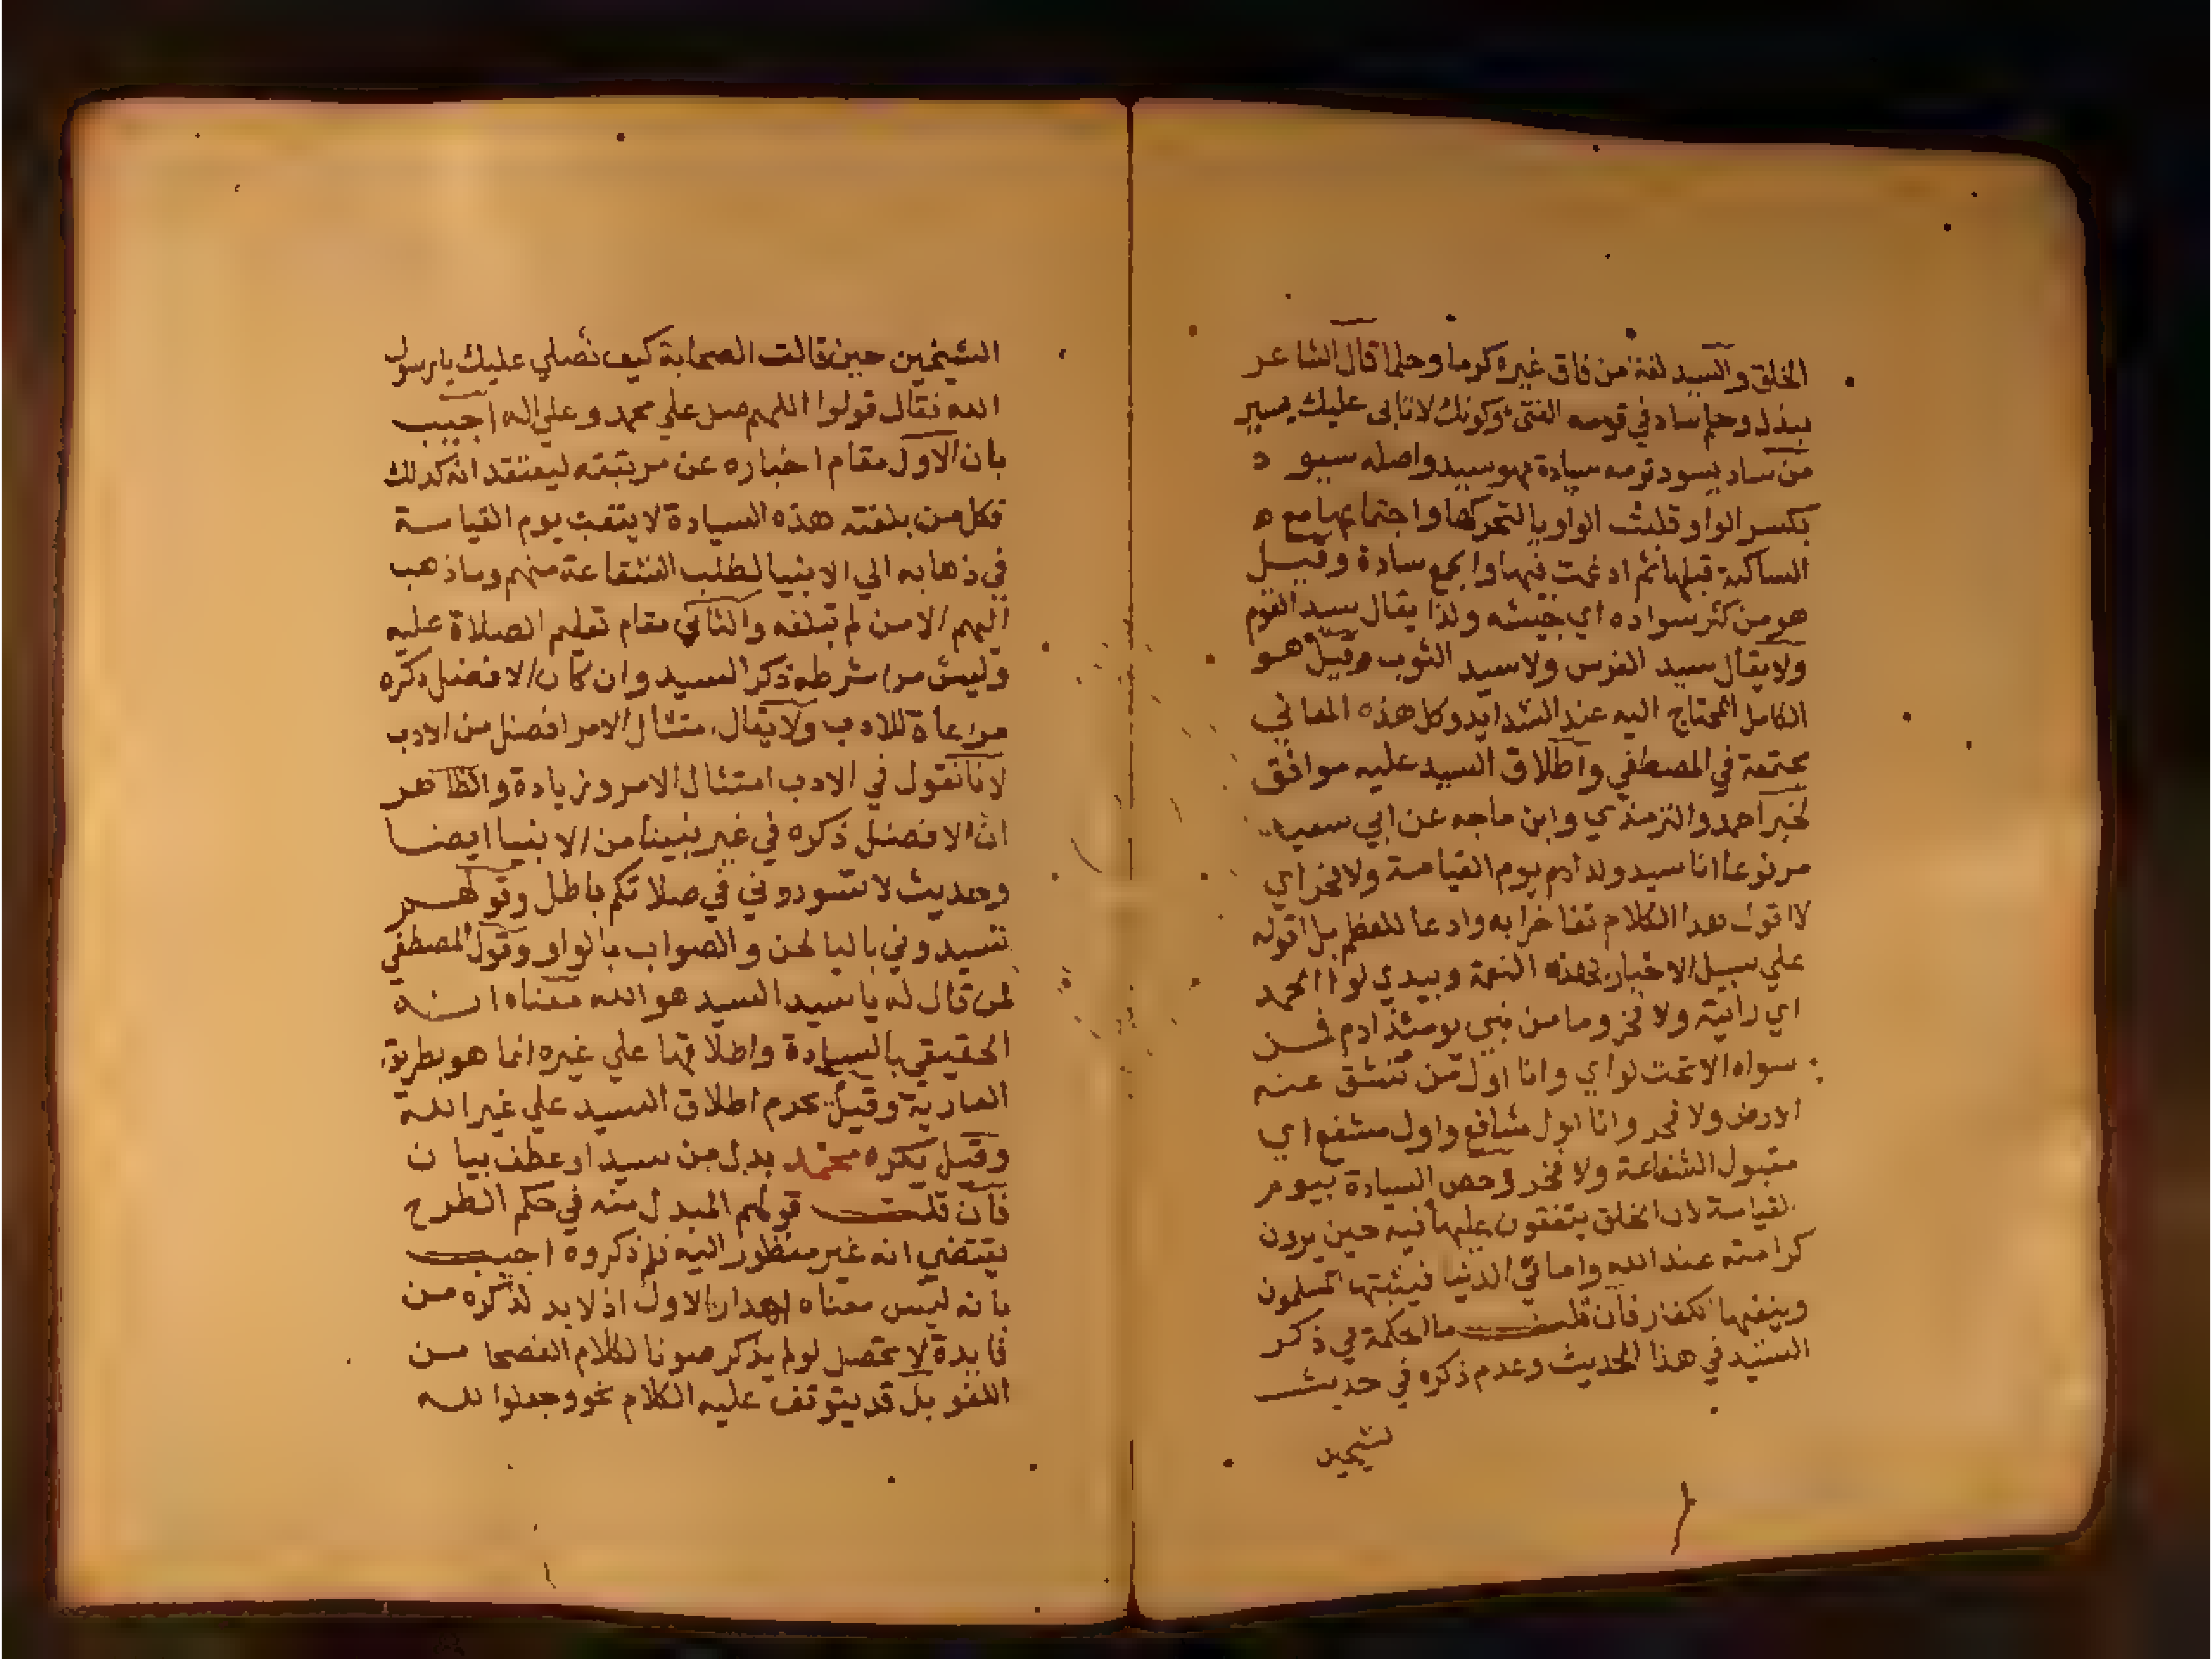 الخلق والسيد لغة من فاق غيره كرما وحلما قال الشاعر
ببذل وحلم ساد في قومه الفتى وكونك اياه عليك يسير
من ساد يسود قومه سيادة فهو سيد واصله سيود
بكسر الواو قلبت الواو يا لتحركها واجتماعها مع
الساكنة قبلها ثم ادغمت فيها والجمع سادة وقيل
هو من كثر سواده اي جيشه ولذا يقال سيد القوم
ولا يقال سيد الفرس ولا سيد الثوب وقيل هو
الكامل المحتاج اليه عند الشدايد وكل هذه المعاني
مجتمعة في المصطفي واطلاق السيد عليه موافق
لخبر احمد والترمذي وابن ماجه عن ابي سعيد
مرفوعا انا سيد ولد ادم يوم القيامة ولا فخر اي
لا اقول هدا الكلام تفاخرا به وادعا للعظم بل اقوله
علي سبيل الاخبار بهذه النعمة وبيدي لواا الحمد
اي رايته ولا فخر وما من نبي يومئذ ادم فمن
سواه الا تحت لواي وانا اول من تنشق عنه
الارض ولا فخر وانا اول شافع واول مشفع اي
مقبول الشفاعة ولا فخر وخص السيادة بيوم
القيامة لان الخلق يتفقون عليها فيه حين يرون
كرامته عند الله واما في الدنيا فيثبتها المسلمون
وينفيها الكفار فان قلت ما الحكمة في ذكر
السيد في هذا الحديث وعدم ذكره في حديث
الشيخين
الشيخين حين قالت الصحابة كيف نصلي عليك يا رسول
الله فقال قولوا اللهم صل علي محمد وعلي اله اجيب
بان الاول مقام اخباره عن مرتبته ليعتقد انه كدلك
فكل من بلغته هذه السيادة لا يتعب يوم القيامة
في ذهابه الي الانبيا لطلب الشفاعة منهم وما ذهب
اليهم الا من لم تبلغه والثاني مقام تعليم الصلاة عليه
وليس من شرطه ذكر السيد وان كان الافضل ذكره
مراعاة للادب ولا يقال امتثال الامر افضل من الادب
لانا نقول في الادب امتثال الامر وزيادة والظاهر
ان الافضل ذكره في غير نبينا من الانبيا ايضا
وحديث لا تسودوني في صلاتكم باطل وقولهم
تسيدوني باليا لحن والصواب بالواو وقول المصطفي
لمن قال له يا سيد السيد هو الله معناه انه
الحقيقي بالسيادة واطلاقها علي غيره انما هو بطريق
العارية وقيل يحرم اطلاق السيد علي غير الله
وقيل يكره محمد بدل من سيد او عطف بيان
فان قلت قولهم المبدل منه في حكم الطرح
يقتضي انه غير منظور اليه فلم ذكروه اجيب
بانه ليس معناه اهدار الاول اذ لابد لذكره من
فايدة لا تحصل لو لم يذكر صونا لكلام الفصحا من
اللغو بل قد يتوقف عليه الكلام نحو وجعلوا لله